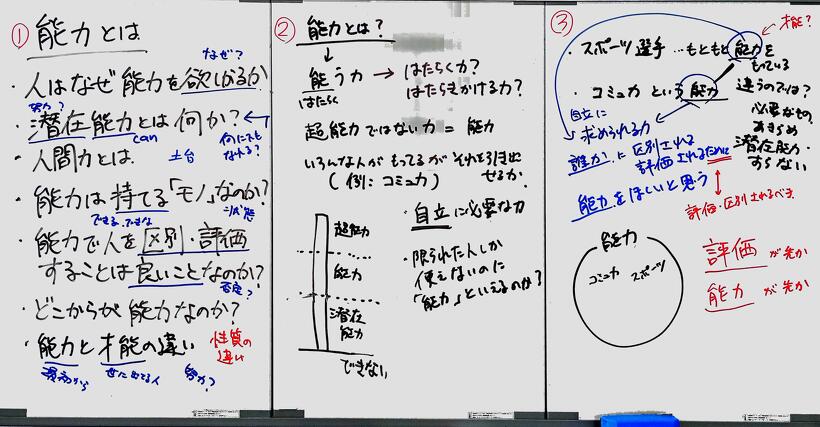 ① 能力とは
なぜ?
・人はなぜ能力を欲しがるか
努力?
・潜在能力とは何か?
can
何にでも
なれる?
・人間力とは
土台
・能力は持てる「モノ」なのか?
できる・できな
・能力で人を区別・評価
することは良いことなのか?
否定?
・どこからが能力なのか?
・能力と才能の違い
性質の
違い
世に出てる人
努力?
② 能力とは?
↓
能う力 → はたらく力?
はたらく
はたらきかける力?
超能力ではない力 = 能力
いろんな人がもってるがそれを引き出
せるか
(例:コミュ力)
・自立に必要な力
・限られた人しか
使えないのに
「能力」といえるのか?
超能力
能力
潜在
能力
できない
③
才能?
・スポーツ選手…もともと能力を
もっている
・コミュ力という能力
違うのでは?
必要なもの
潜在能力
すらない
自立に
求められる力
誰かに区別される
評価されるために
能力をほしいと思う
評価・区別されるべき
能力
コミュ力 スポーツ
評価が先か
能力が先か